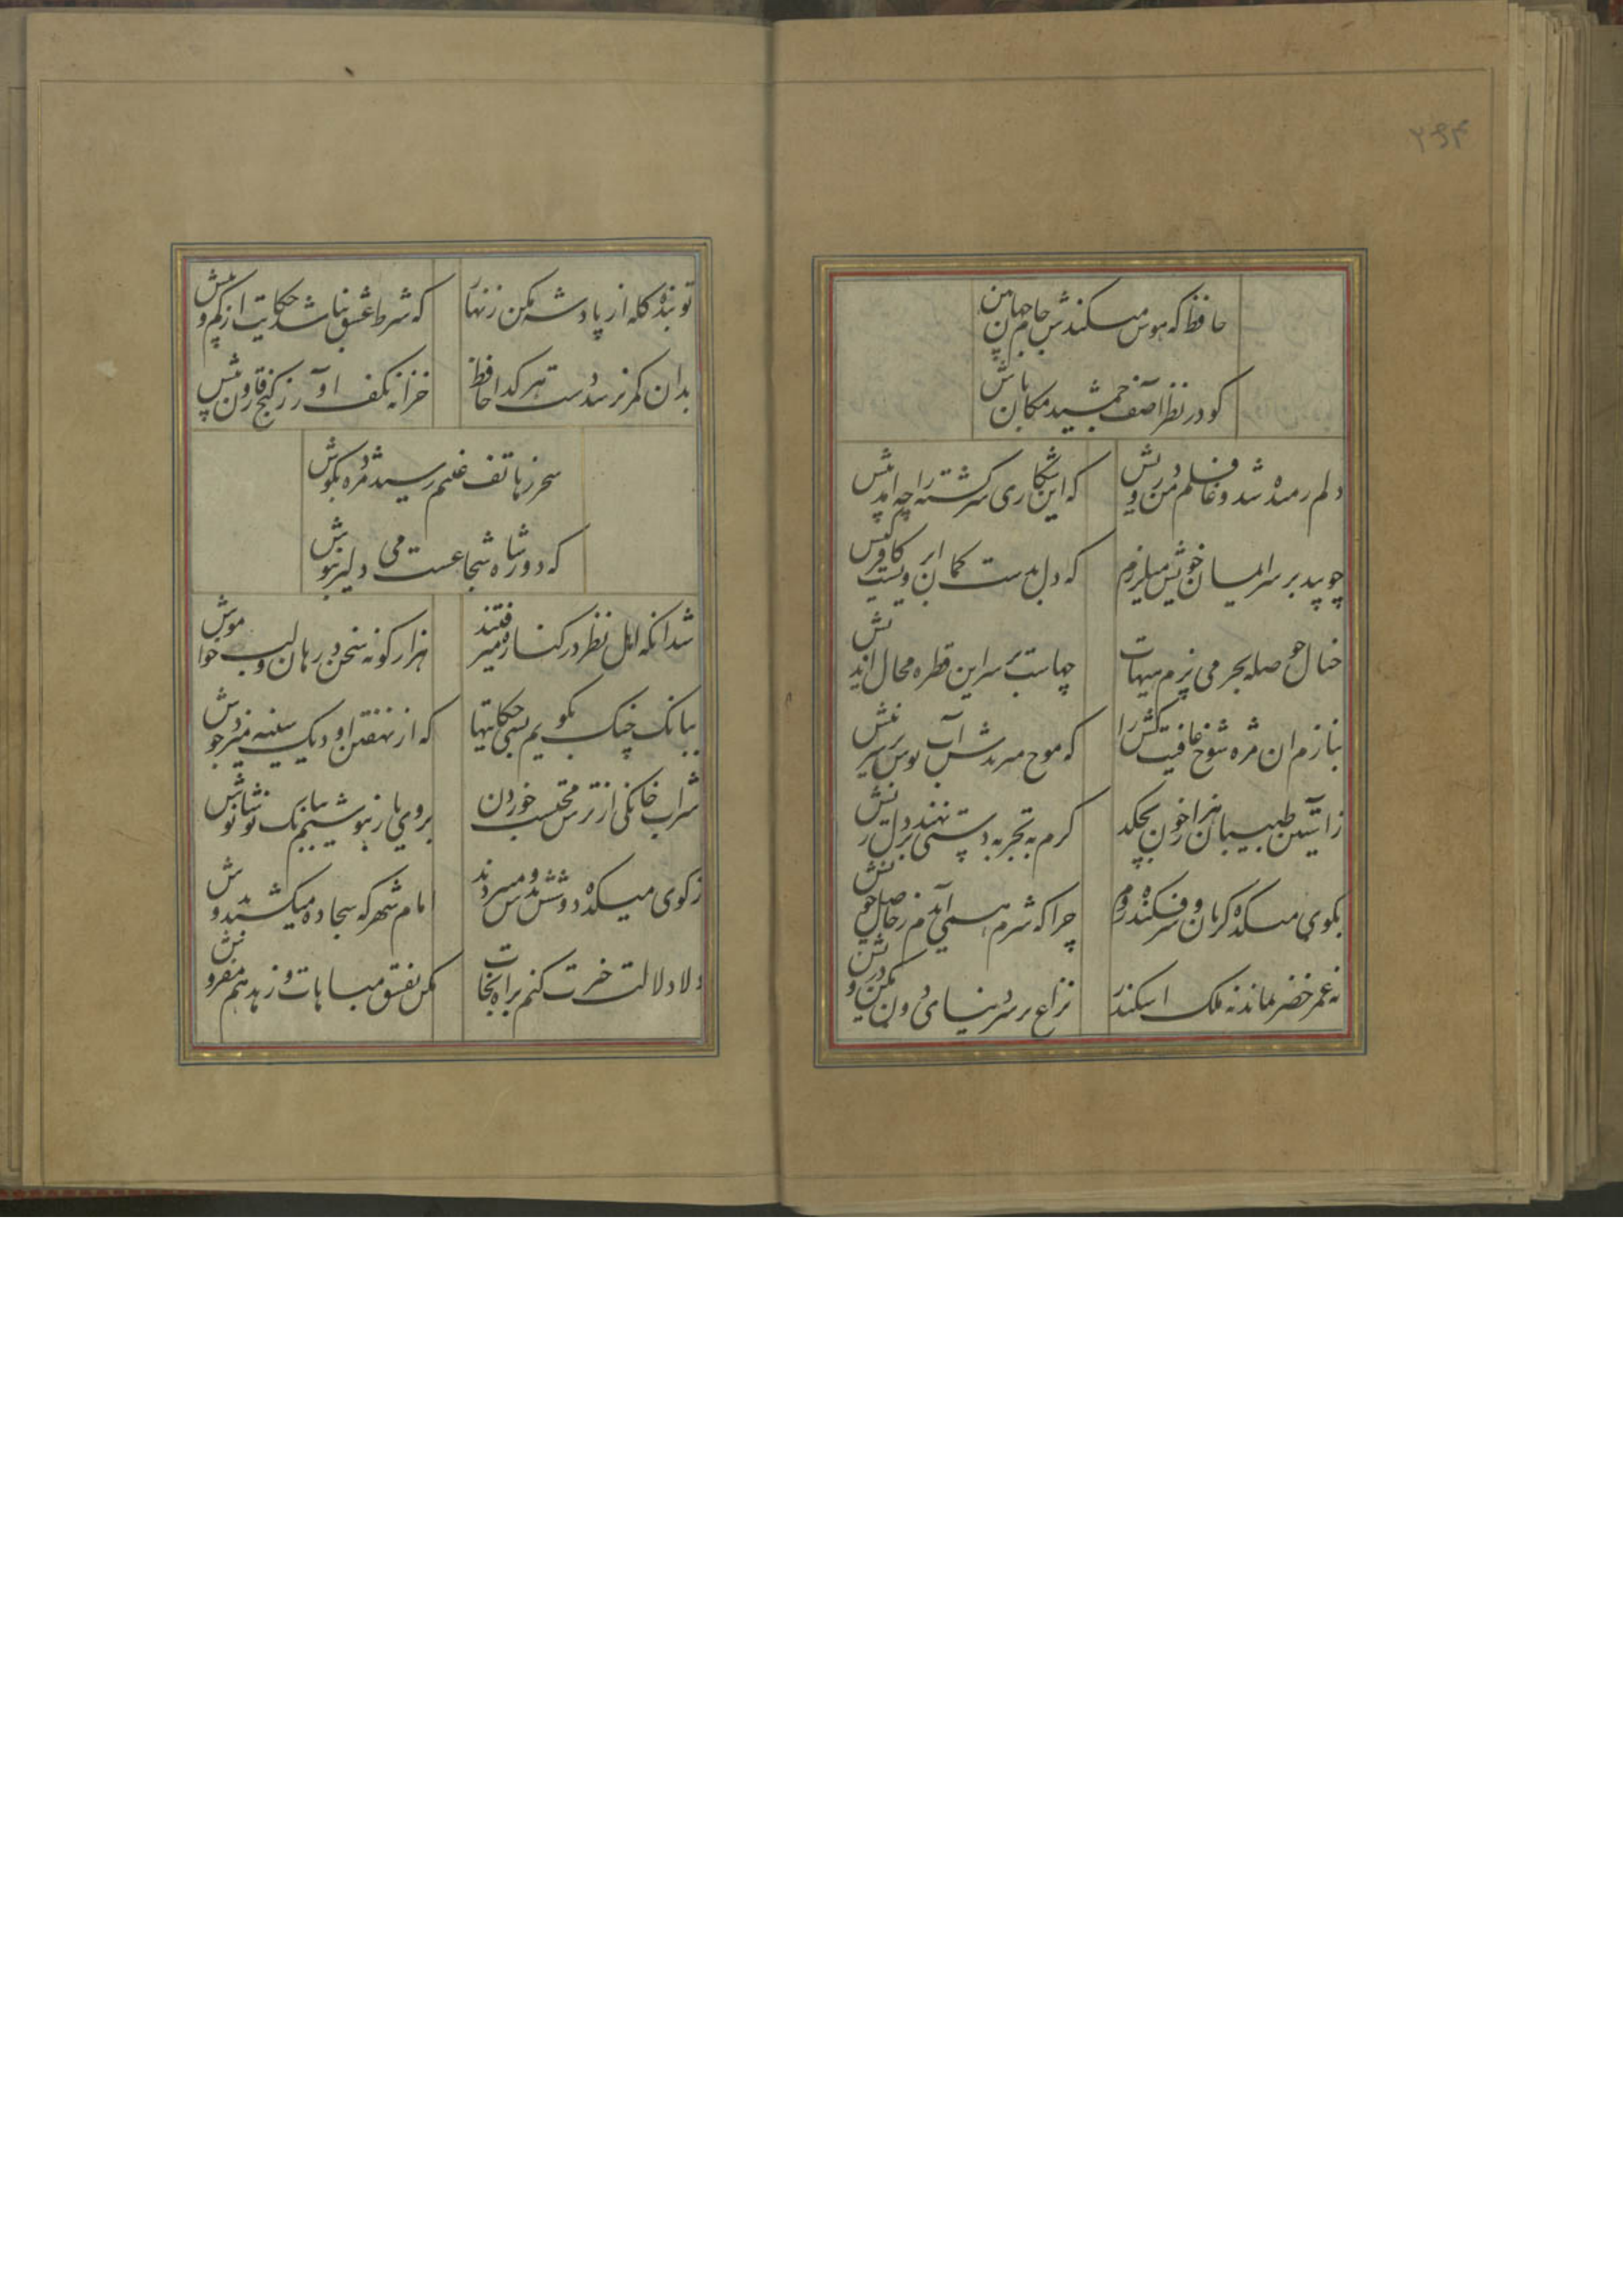 ۲۶۴
حافظ که هوس میکندش جام جهان بین
کو در نظر آصف جمشید مکان باش
دلم رمیده شد و غافلم من درویش
که این شکاری سرگشته را چه آمد پیش
چو بید بر سر ایمان خویش میلرزم
که دل بدست کمان ابرویست کافر کیش
خیال حوصله بحر می پزم هیهات
چهاست بر سر این قطره محال اندیش
بنازم ان مژه شوخ عافیت کش را
که موج میزندش آب نوش بر سر نیش
ز آستین طبیبان هزار خون بچکد
گرم به تجربه دستی نهند بر دل ریش
بکوی میکده گریان و سرفکنده روم
چرا که شرم همی آیدم ز حاصل خویش
نه عمر خضر بماند نه ملک اسکندر
نزاع بر سر دنیای دون مکن درویش
تو بنده گله از پادشه مکن زنهار
که شرط عشق نباشد حکایت از کم و بیش
بدان کمر نرسد دست هر گدا حافظ
خزانه بکف آور ز گنج قارون بیش
سحر ز هاتف غیبم رسید مژده بگوش
که دور شاه شجاعست می دلیر بنوش
شد انکه اهل نظر در کناره میرفتند
هزار گونه سخن در دهان و لب خاموش
ببانگ چنگ بگویم بسی حکایتها
که از نهفتن او دیگ سینه میزد جوش
شراب خانگی از ترس محتسب خوردن
بروی یار بنوشیم بانگ نوشانوش
ز کوی میکده دوشش بدوش میبردند
امام شهر که سجاده میکشید بدوش
دلا دلالت خیرت کنم براه نجات
مکن بفسق مباهات و زهد هم مفروش